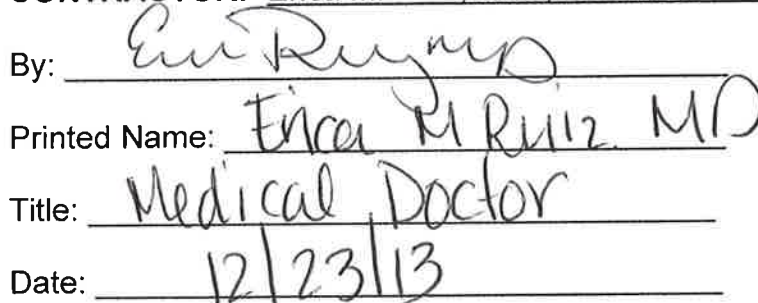 CONTRACTOR:
By:
Printed Name: Erica M Ruiz MD
Title: Medical Doctor
Date: 12/23/13